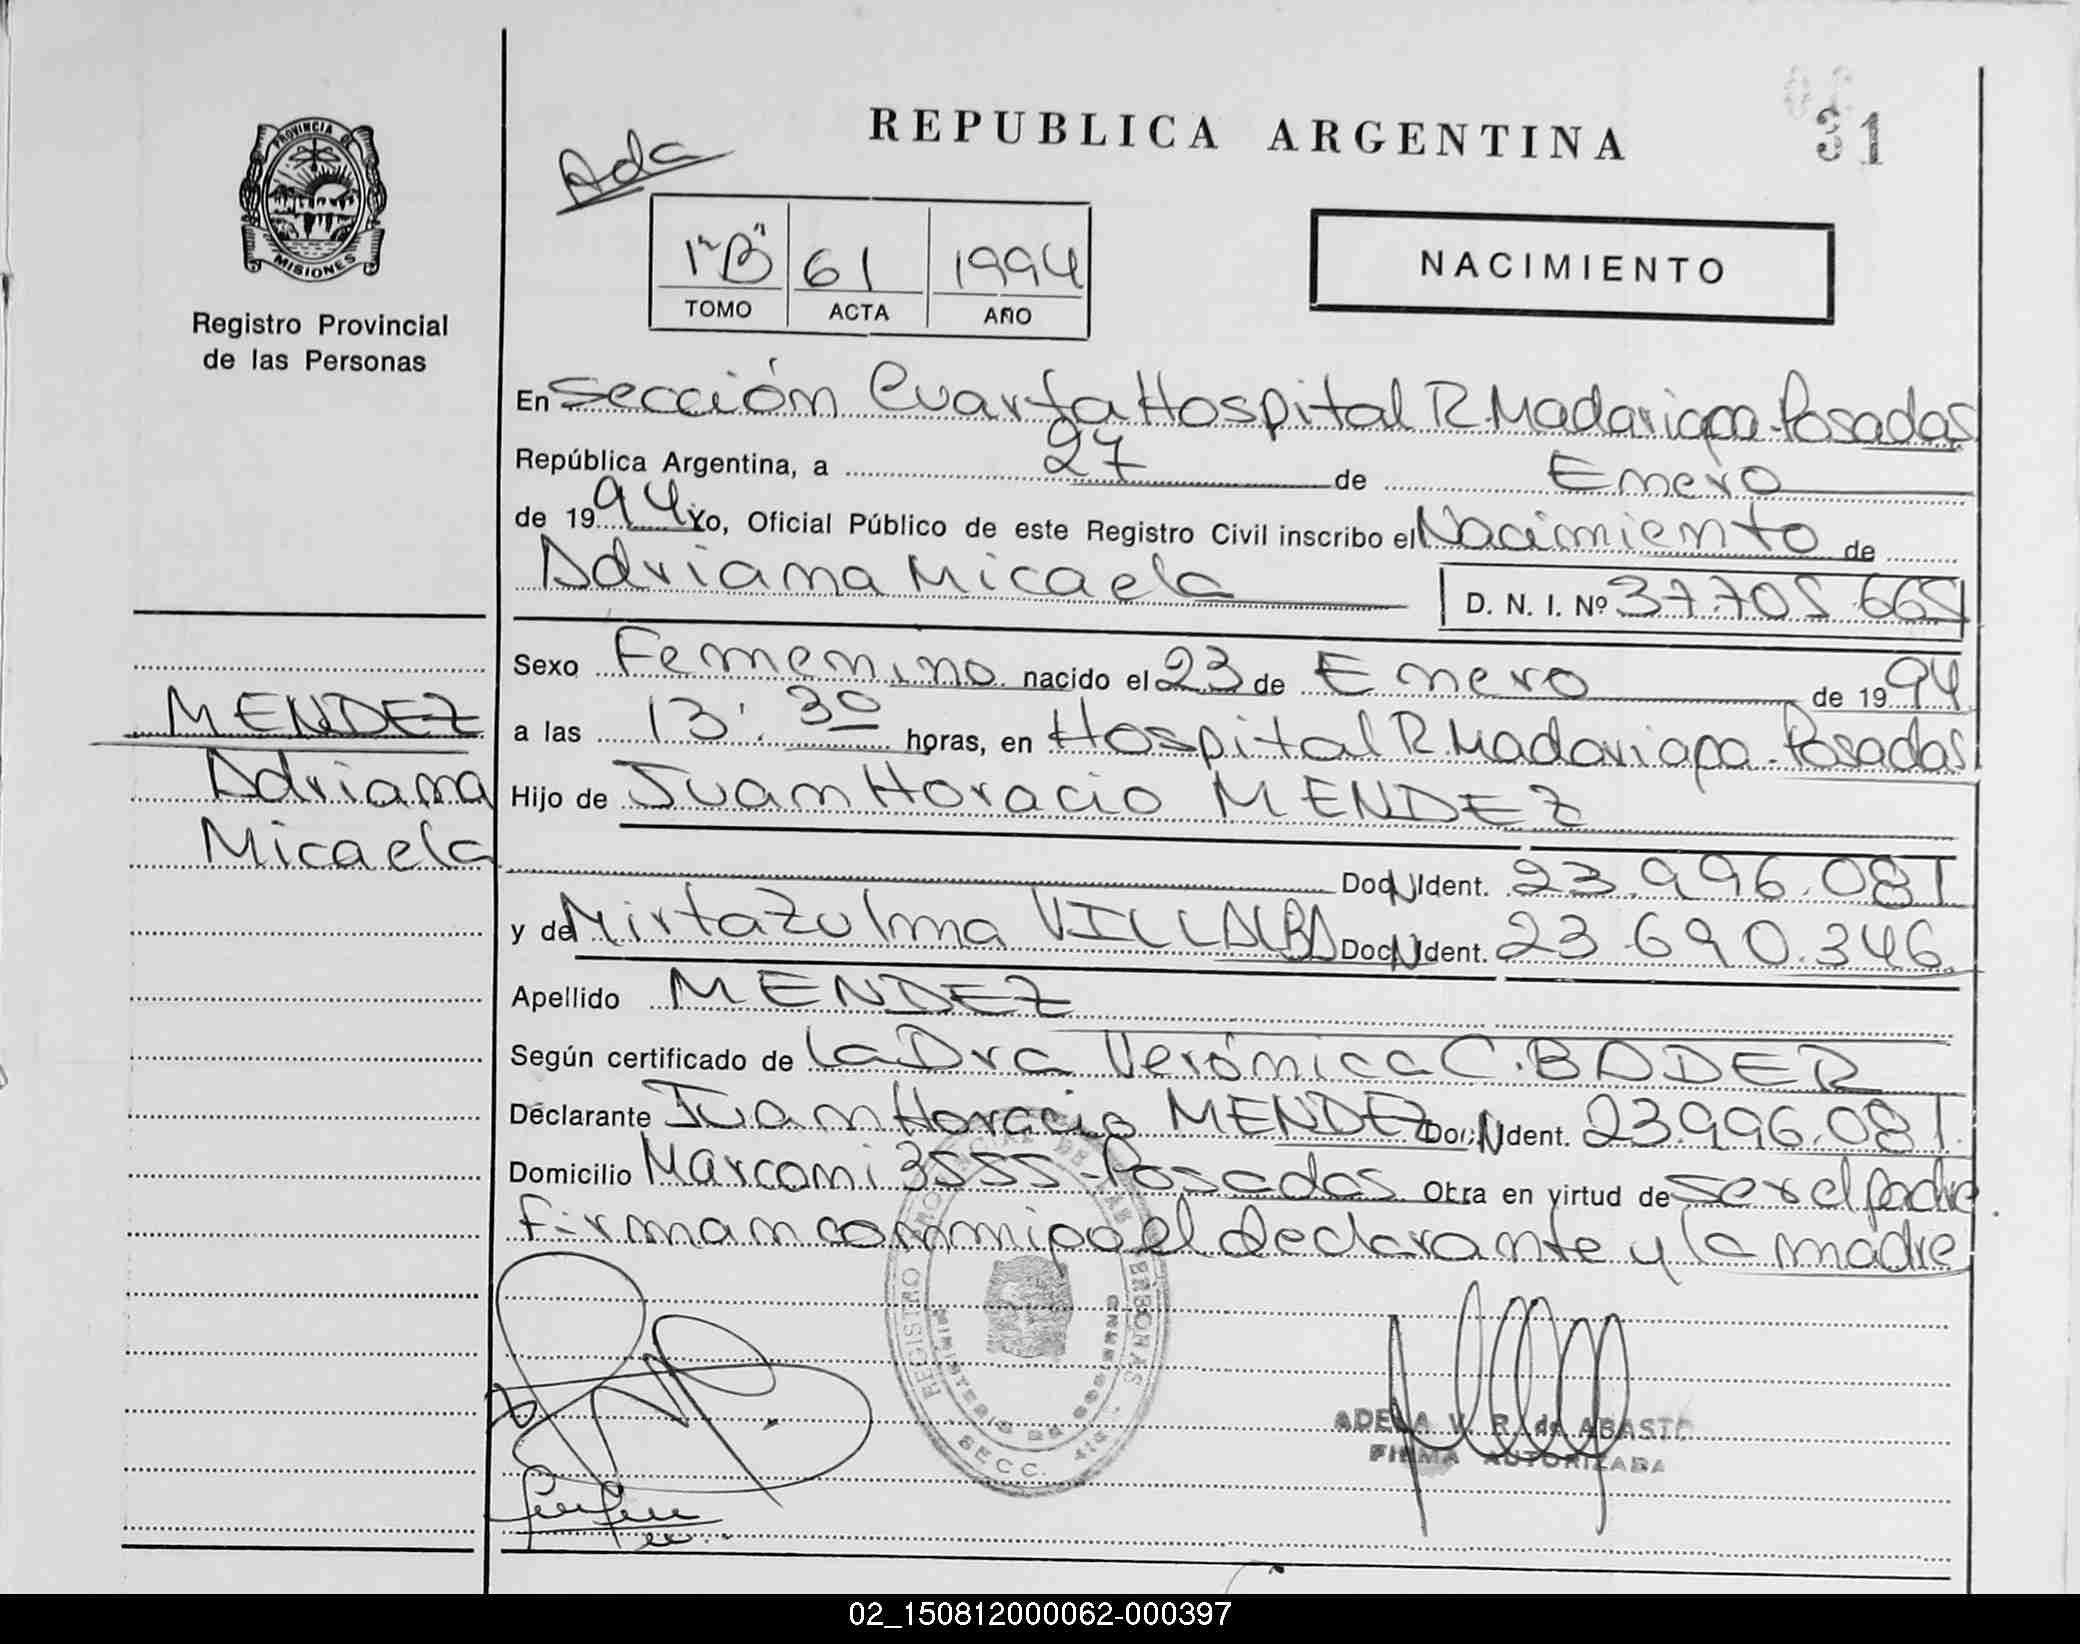 REPUBLICA ARGENTINA
31
Ada
PROVINCIA DE
MISIONES
Registro Provincial
de las Personas
1º"B" 61 1994
TOMO ACTA AÑO
NACIMIENTO
En Sección Cuarta Hospital R. Madariaga - Posadas
República Argentina, a 27 de Enero
de 1994 Yo, Oficial Público de este Registro Civil inscribo el Nacimiento de
Adriana Micaela D. N. I. Nº 37.705.665
Sexo Femenino nacido el 23 de Enero de 1994
MENDEZ
Adriana
Micaela
a las 13:30 horas, en Hospital R. Madariaga - Posadas
Hijo de Juan Horacio MENDEZ
Doc N Ident. 23.996.081
y de Mirta Zulma VILLALBA Doc N Ident. 23.690.346
Apellido MENDEZ
Según certificado de la Dra Verónica C. BADER
Declarante Juan Horacio MENDEZ Doc. N Ident. 23.996.081
Domicilio Marconi 3555 - Posadas Obra en virtud de ser el padre.
Firman conmigo el declarante y la madre
REGISTRO PROVINCIAL DE LAS PERSONAS
MINISTERIO DE GOBIERNO
SECC. 4ta
ADELA V. R. de ABASTO
FIRMA AUTORIZADA
02_150812000062-000397